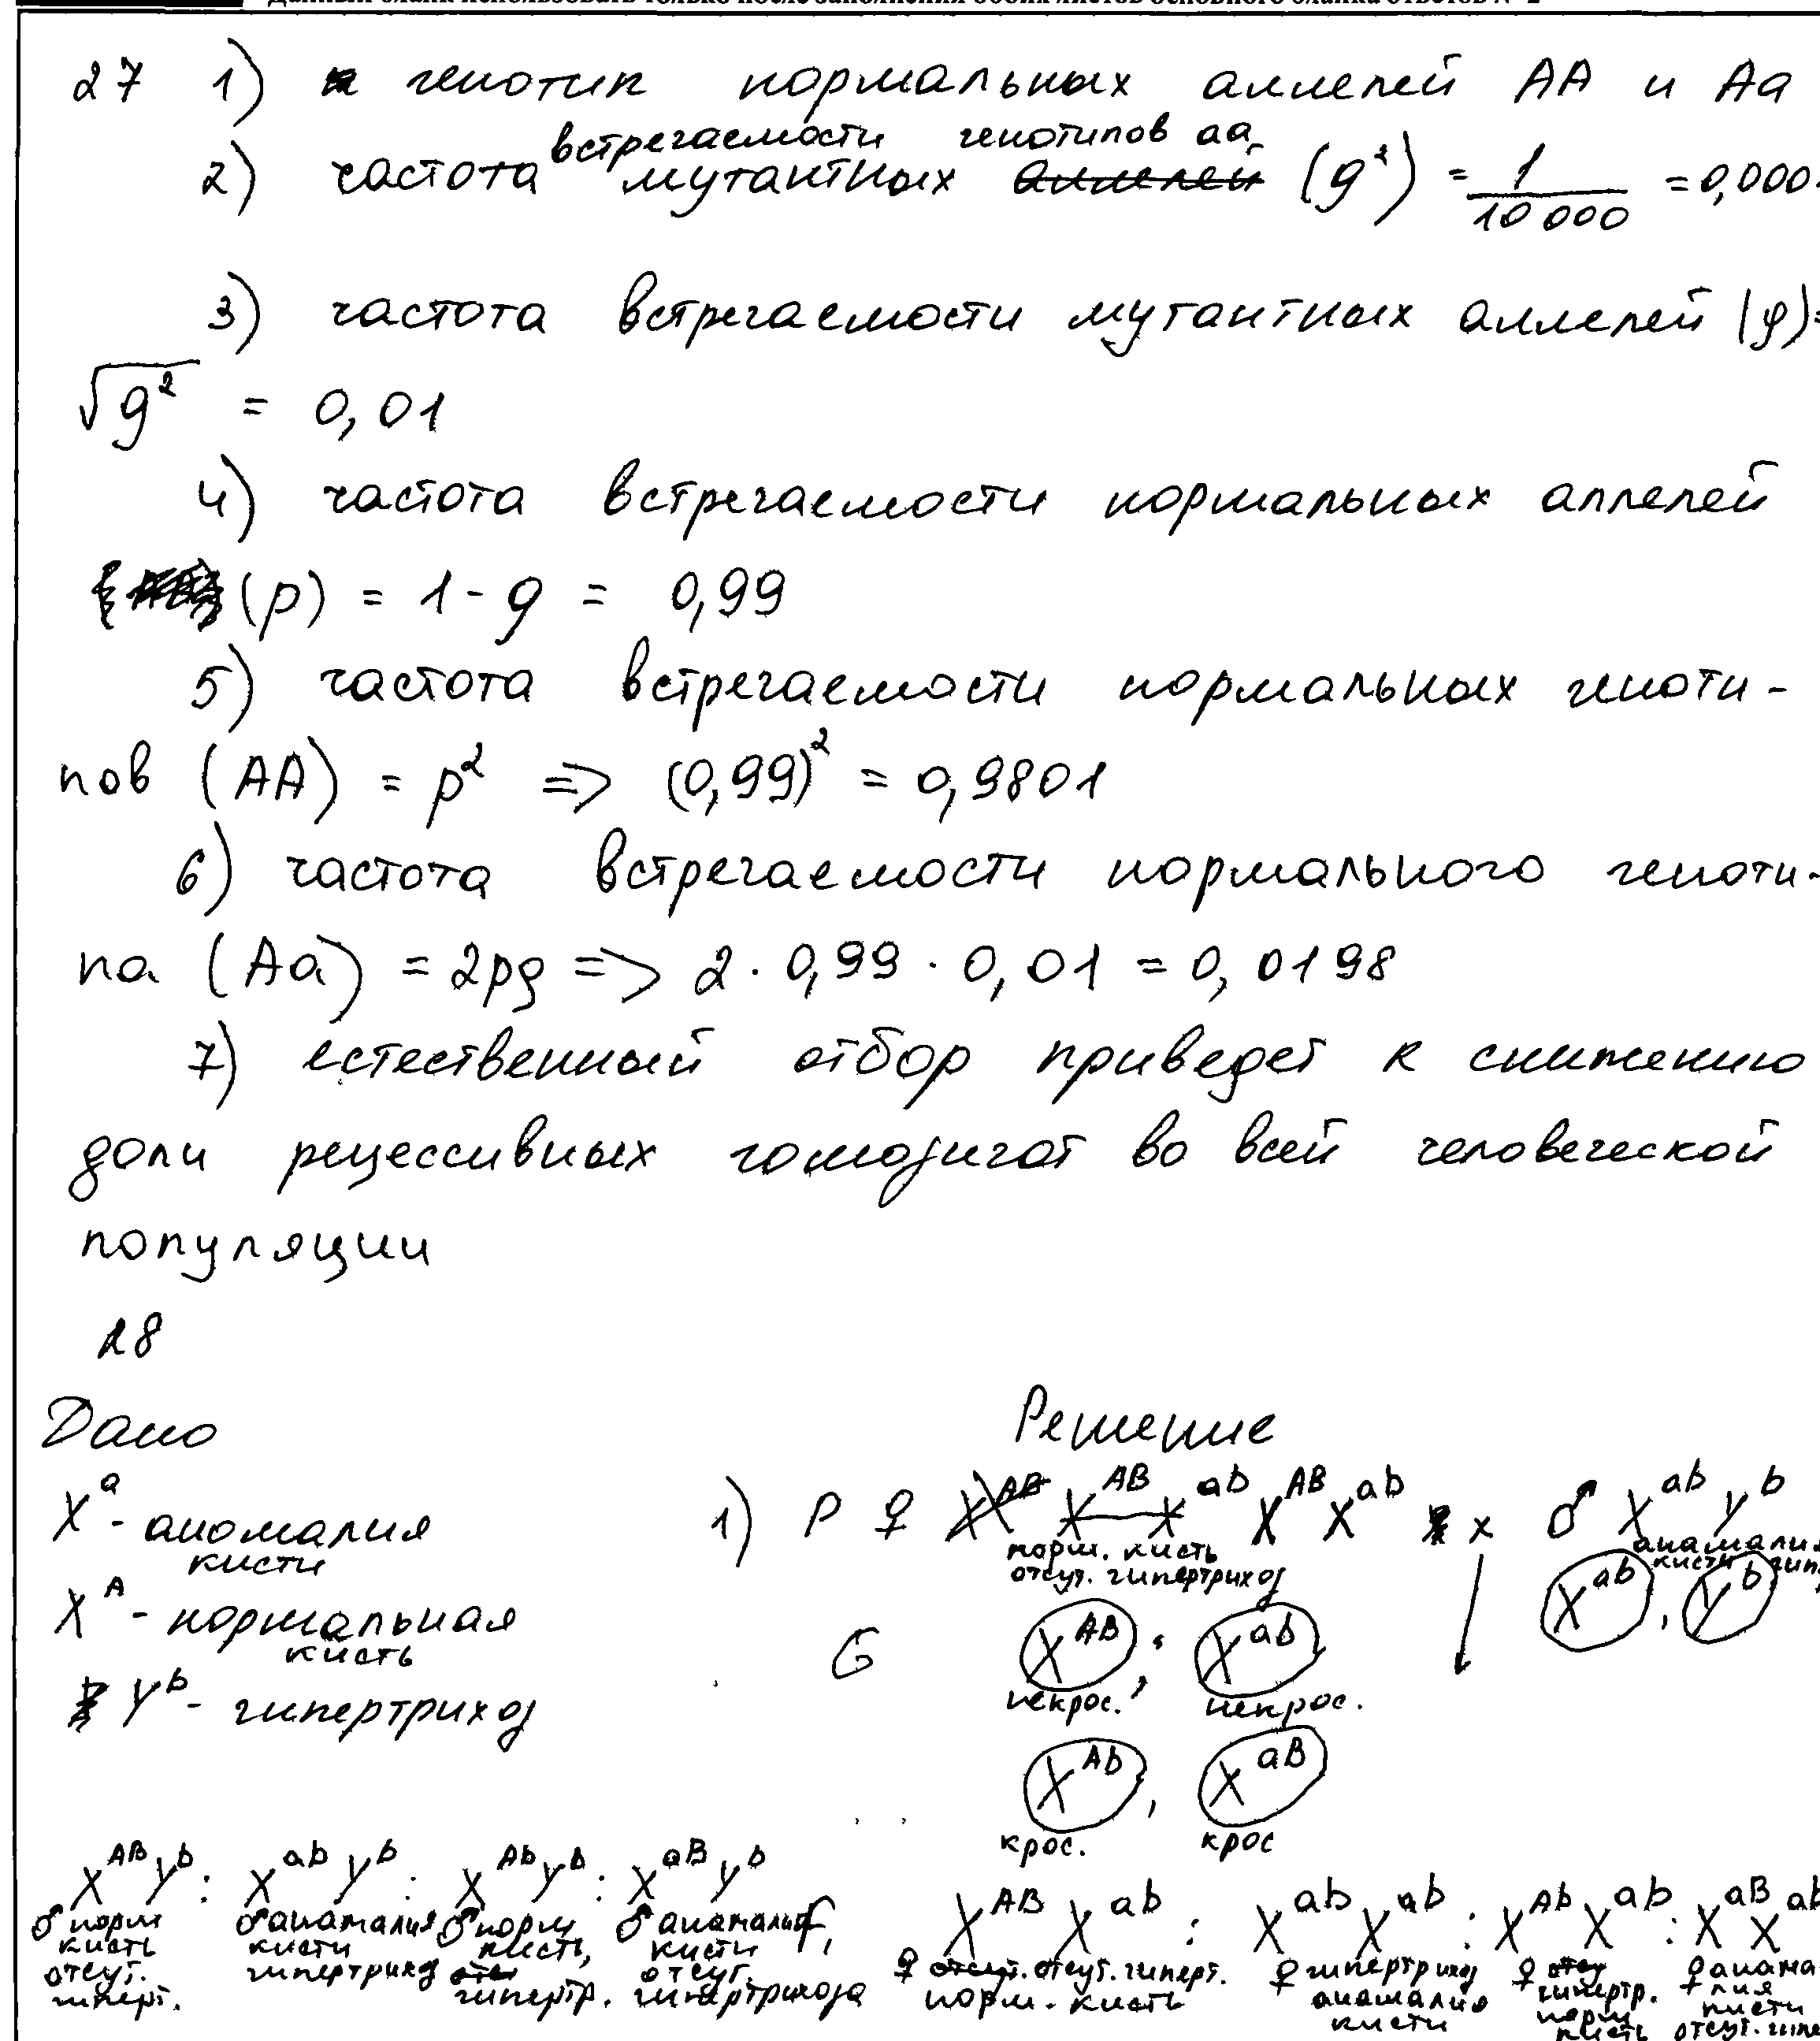 Данный бланк использовать только после заполнения обоих листов основного бланка ответов № 2
27 1) генотип нормальных аллелей AA и Aa
встречаемости генотипов aa
2) частота мутантных аллелей (g²) = 1/10 000 = 0,000
3) частота встречаемости мутантных аллелей (g) =
√g² = 0,01
4) частота встречаемости нормальных аллелей
(p) = 1 - g = 0,99
5) частота встречаемости нормальных геноти-
пов (AA) = p² => (0,99)² = 0,9801
6) частота встречаемости нормального геноти-
па (Aa) = 2pg => 2 · 0,99 · 0,01 = 0,0198
7) естественный отбор приведет к снижению
доли рецессивных гомозигот во всей человеческой
популяции
28
Дано
Решение
Xᵃ - аномалия
кисти
Xᴬ - нормальная
кисть
Yᵇ - гипертрихоз
1) P ♀ X^AB X^AB X^ab X^AB X^ab x ♂ X^ab Y^b
норм. кисть
отсут. гипертрихоз
аномалия
кисти гип
G X^AB, X^ab X^ab, Y^b
некрос. некрос.
X^Ab, X^aB
крос. крос
X^AB Y^b : X^ab Y^b : X^Ab Y^b : X^aB Y^b
♂ норм
кисть
отсут.
гиперт.
♂ анамалия
кисти
гипертрихоз
♂ норм
кисть,
отсу
гипертр.
♂ анамалия
кисти
отсут.
гипертрихоза
X^AB X^ab : X^ab X^ab : X^Ab X^ab : X^aB X^ab
♀ отсут. отсут. гиперт.
норм. кисть
♀ гипертрихоз
анамалия
кисти
♀ отсу
гипертр.
норм
кисть
♀ анама-
лия
кисти
отсут. гипе